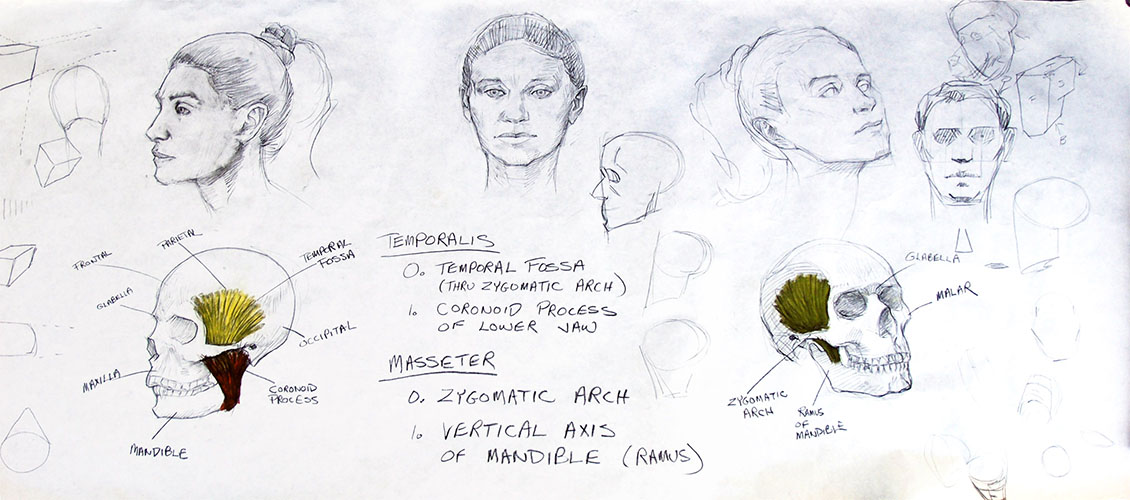 FRONTAL
PARIETAL
TEMPORAL
FOSSA
GLABELLA
OCCIPITAL
MAXILLA
CORONOID
PROCESS
MANDIBLE
TEMPORALIS
O. TEMPORAL FOSSA
(THRU ZYGOMATIC ARCH)
I. CORONOID PROCESS
OF LOWER JAW
MASSETER
O. ZYGOMATIC ARCH
I. VERTICAL AXIS
OF MANDIBLE (RAMUS)
GLABELLA
MALAR
ZYGOMATIC
ARCH
RAMUS
OF
MANDIBLE